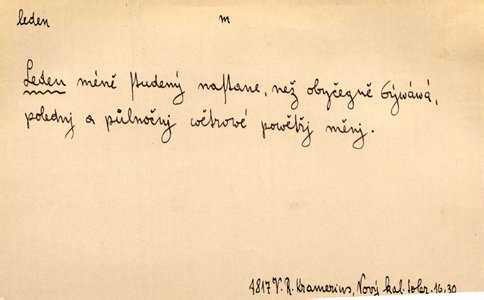 leden m
Leden méně studený nastane, než obyčegně býwáwá,
polednj a půlnočnj wětrowé powětřj měnj.
1817 V. R. Kramerius, Nový kal. toler. 16.30